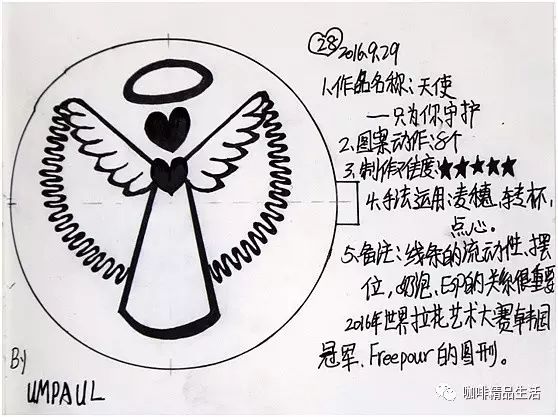 28 2016.9.29
1.作品名称:天使
—只为你守护
2.图案动作:8个
3.制作难度:★★★★★
4.手法运用:麦穗、转杯,
点心。
5.备注:线条的流动性、摆
位,奶泡、ESP的关系很重要
2016年世界拉花艺术大赛韩国
冠军、Freepour的图形。
By
UMPAUL
咖啡精品生活